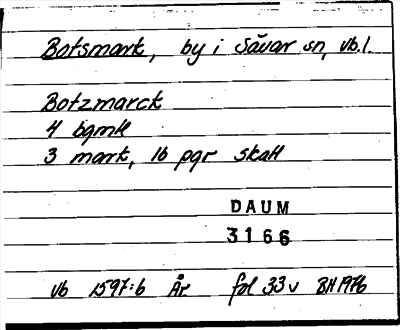 Botsmark, by i Sävar sn, vb.l.
Botzmarck
4 bgmk
3 mark, 16 pgr skatt
DAUM
3166
Vb 1597:6 År fol 33v BH 1976